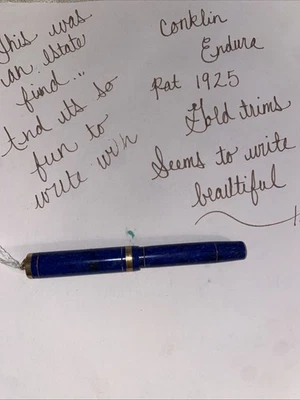 This was
an estate
find...
And its so
fun to
write with
Conklin
Endura
Pat 1925
Gold trims
Seems to write
beautiful